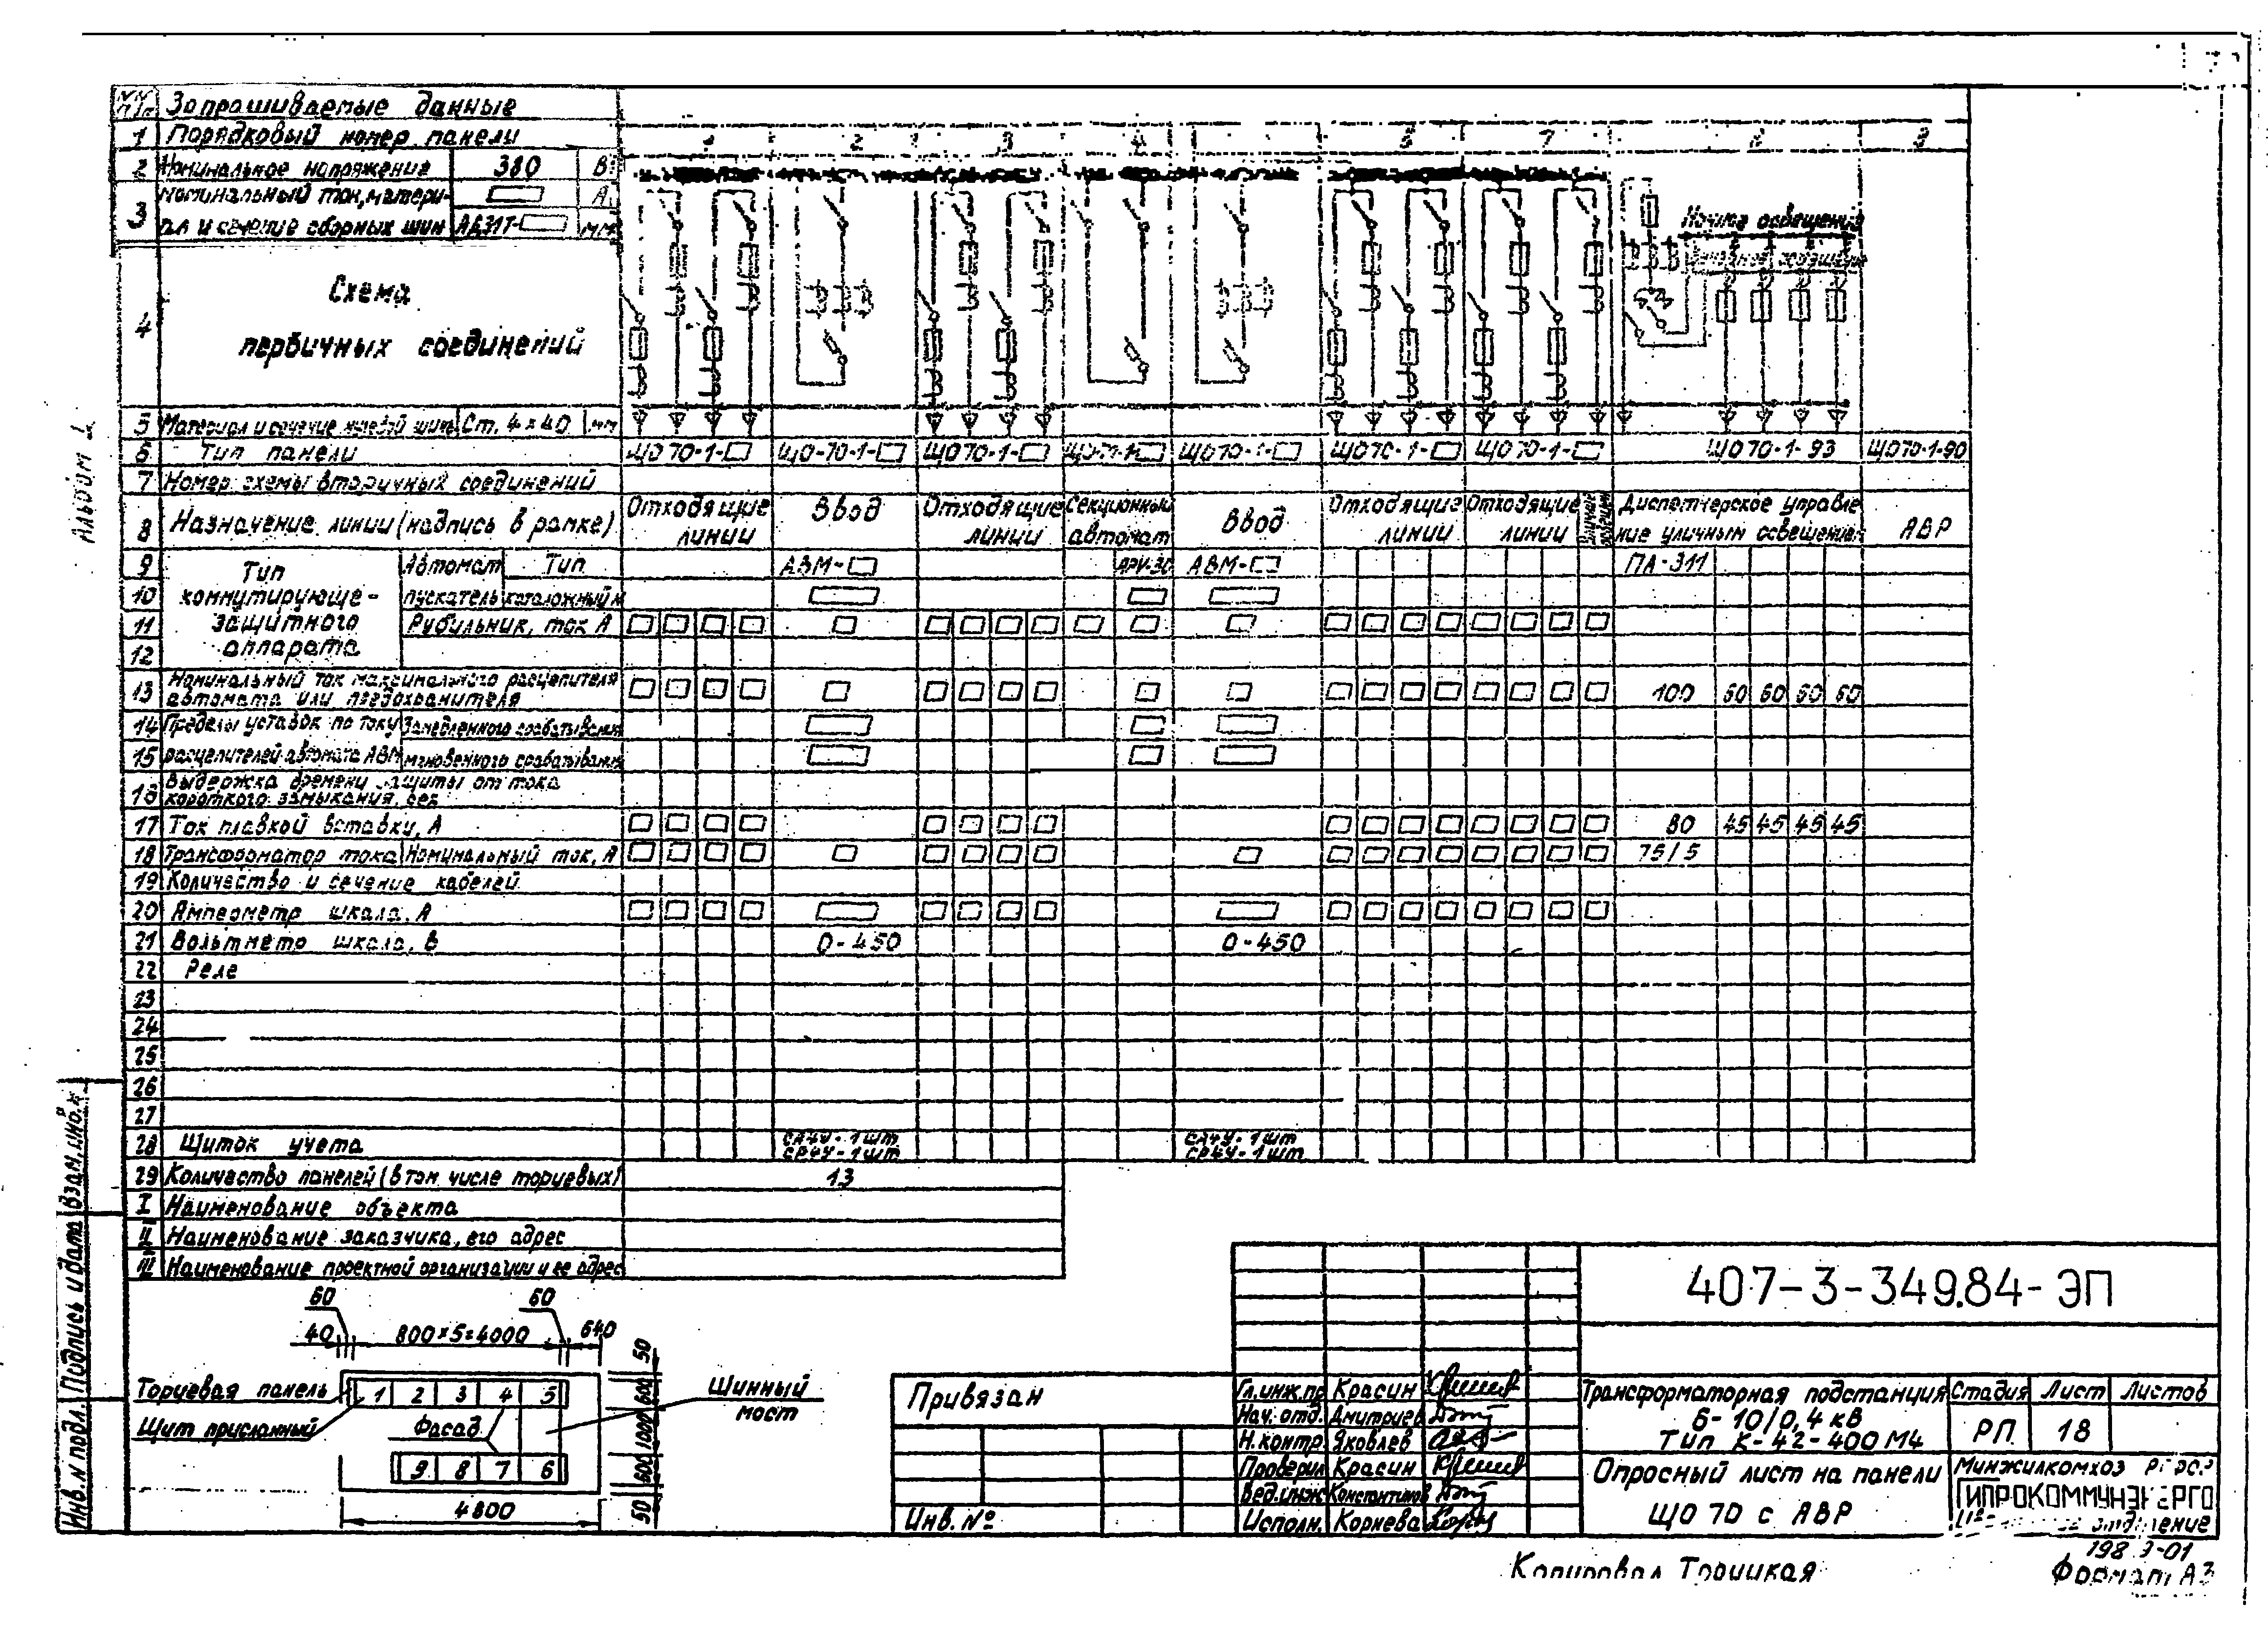 Запрашиваемые данные
1 Порядковый номер панели 2 3 4 7 9
2 Номинальное напряжение 380 В
3 Номинальный ток, матери-
ал и сечение сборных шин АД31Т- мм
4 Схема
первичных соединений
5 Материал и сечение нулевой шины Ст. 4×40 мм
6 Тип панели ЩО70-1- ЩО-70-1- ЩО70-1- ЩО70-1- ЩО70-1- ЩО70-1- ЩО70-1-93 ЩО70-1-90
7 Номер схемы вторичных соединений
8 Назначение линии (надпись в рамке) Отходящие линии Ввод Отходящие линии Секционный автомат Ввод Отходящие линии Отходящие линии Диспетчерское управле
ние уличным освещением АВР
9 Тип коммутирующе-защитного аппарата Автомат Тип АВМ- АВМ- ПА-311
10 пускатель каталожный №
11 Рубильник, ток А
12
13 Номинальный ток максимального расцепителя
автомата или предохранителя 100 60 60 60 60
14 Пределы уставок по току замедленного срабатывания
15 расцепителей автомата АВМ мгновенного срабатывания
16 Выдержка времени защиты от тока
короткого замыкания, сек
17 Ток плавкой вставки, А 80 45 45 45 45
18 Трансформатор тока Номинальный ток, А 75/5
19 Количество и сечение кабелей
20 Амперметр шкала, А
21 Вольтметр шкала, В 0-450 0-450
22 Реле
23
24
25
26
27
28 Щиток учета СА4У-1шт СА4У-1шт
СР4У-1шт СР4У-1шт
29 Количество панелей (в том числе торцевых) 13
I Наименование объекта
II Наименование заказчика, его адрес
III Наименование проектной организации и ее адрес
Альбом
Взам. инв. №
Подпись и дата
Инв. N подл.
60 60
40 800×5=4000 640
50 600 1000 600 50
Торцевая панель 1 2 3 4 5 Шинный
мост
Щит присланный Фасад
9 8 7 6
4800
Привязан
Инв. №
407-3-349.84-ЭП
Гл.инж.пр Красин
Нач. отд. Дмитриев
Н.контр. Яковлев
Проверил Красин
Вед.инж Константинов
Исполн. Корнева
Трансформаторная подстанция
6-10/0,4 кВ
Тип К-42-400М4
Стадия Лист Листов
РП 18
Опросный лист на панели
ЩО 70 с АВР
Минжилкомхоз РСФСР
ГИПРОКОММУНЭНЕРГО
Копировал Троицкая
Формат А3